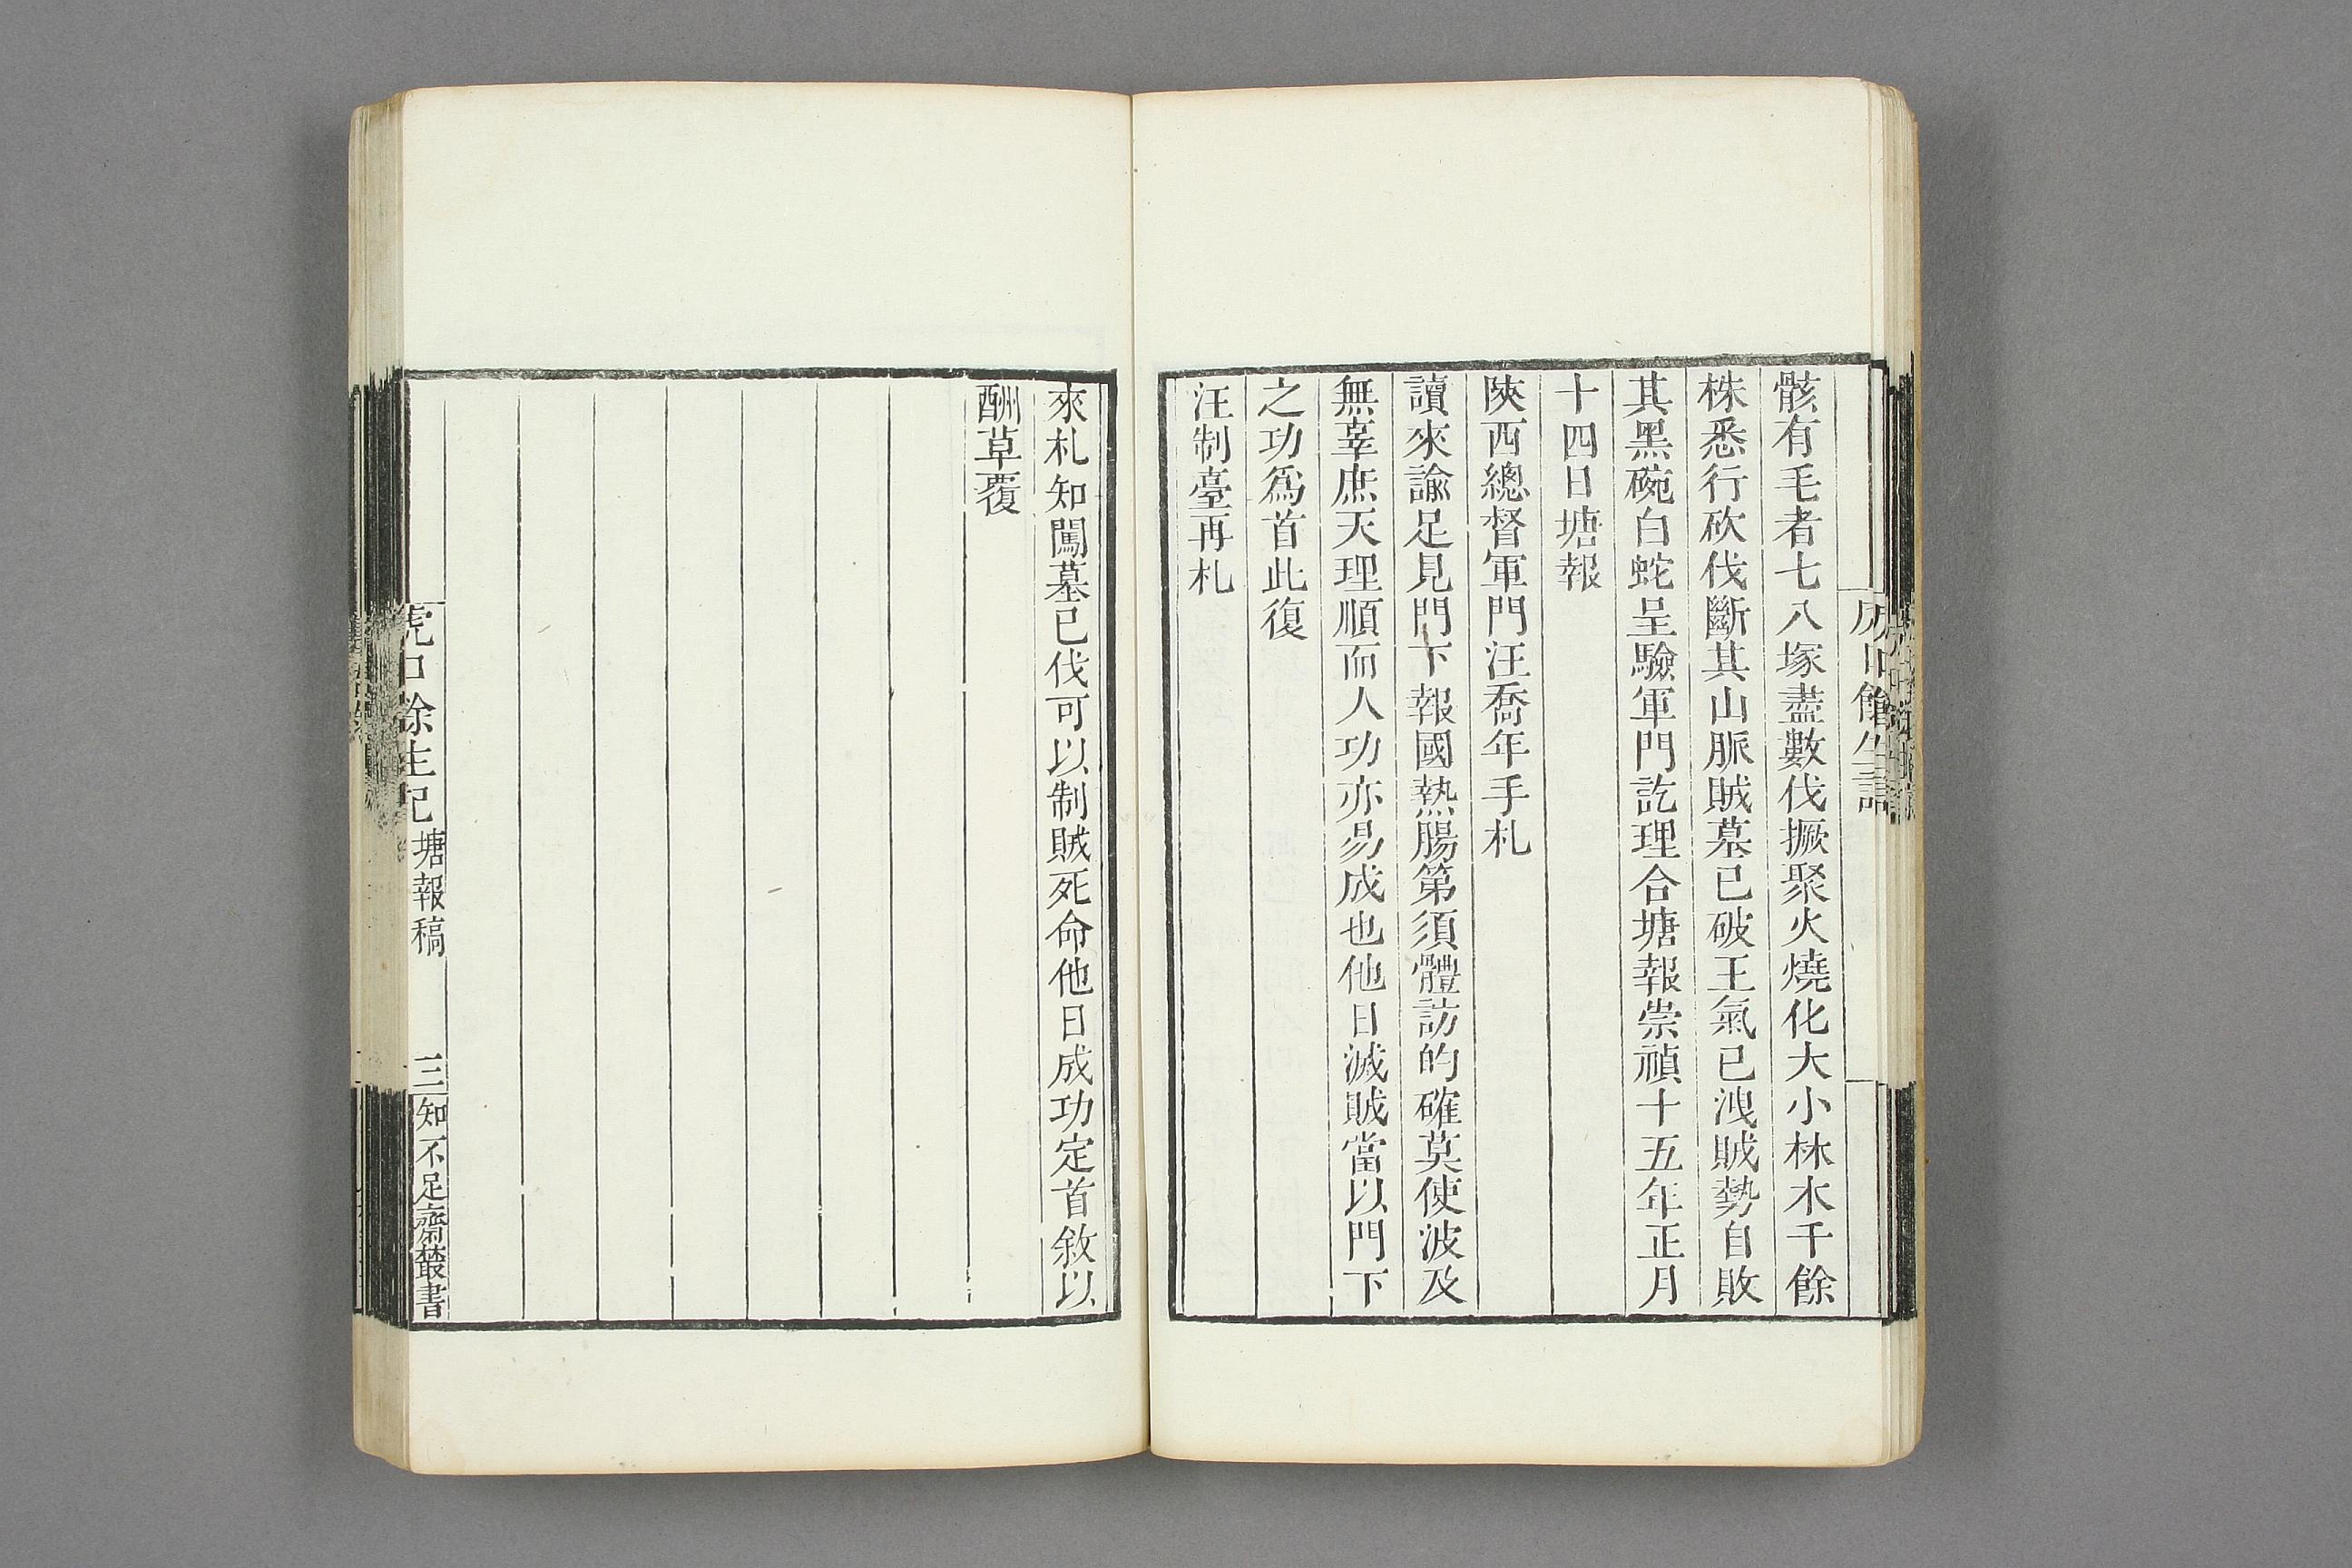 骸有毛者七八塚盡數伐撅聚火燒化大小林木千餘
株悉行砍伐斷其山脈賊墓已破王氣已洩賊勢自敗
其黑碗白蛇呈驗軍門訖理合塘報崇禎十五年正月
十四日塘報
陝西總督軍門汪喬年手札
讀來諭足見門下報國熱腸第須體訪的確莫使波及
無辜庶天理順而人功亦易成也他日滅賊當以門下
之功爲首此復
汪制臺再札
來札知闖墓已伐可以制賊死命他日成功定首敘以
酬草覆
虎口餘生記 塘報稿 三 知不足齋叢書